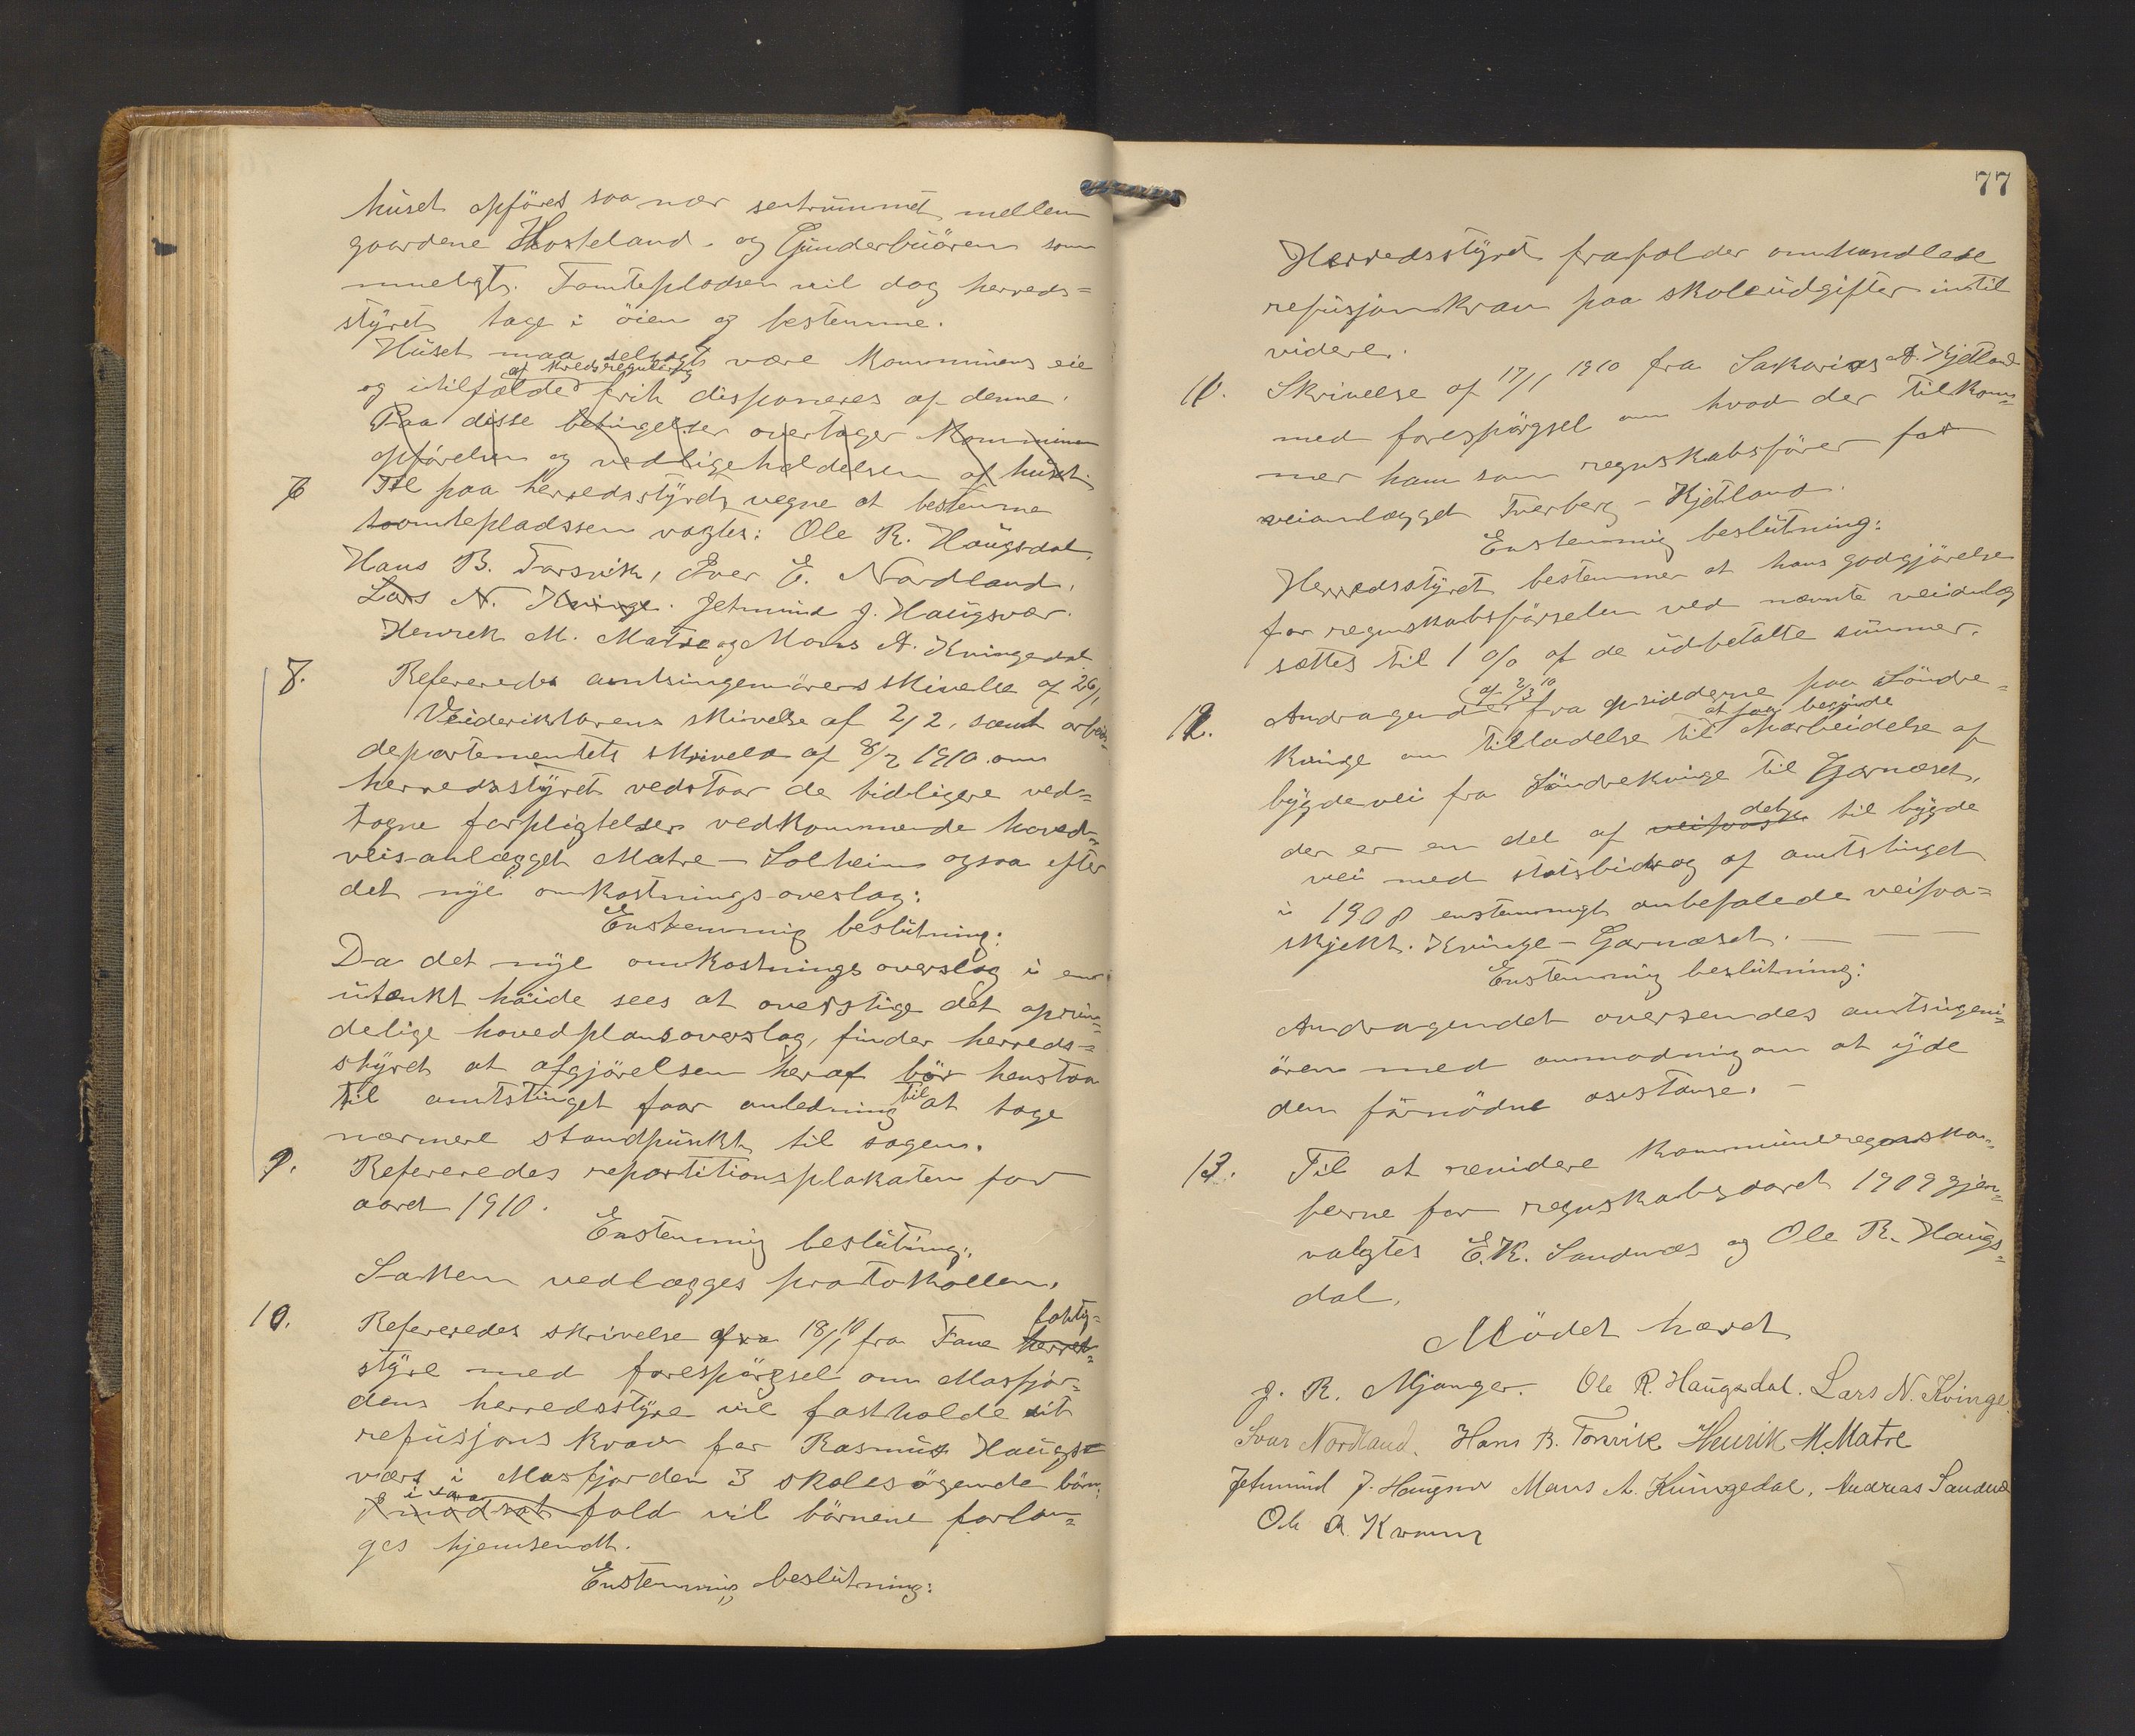 huset opføres saa nær sentrummet mellem
gaardene Hosteland og Gunderbuøren som
mueligt. Tomtepladsen vil dog herreds=
styret tage i øien og bestemme.
Huset maa selvsagt være kommunens eie
og i tilfælde af kredsregulering frit disponeres af denne.
Paa disse betingelser overtager kommunen
opførelsen og vedligeholdelsen af huset.
7 Til paa herredsstyrets vegne at bestemme
toomtepladssen valgtes: Ole R. Haugsdal,
Hans B. Torsvik, Iver E. Nordland,
Lars N. Kvinge. Jetmund J. Haugsvær.
Henrik M. Matre og Mons A. Kvingedal
8. Refereredes amtsingeniørens skivelse af 26/1
Veideriktørens skivelse af 2/2, samt arbeids=
departementets skrivelse af 8/2 1910 om
herredsstyret vedstaar de tidligere ved=
tagne forpligtelser vedkommende hoved=
veis-anlægget Matre - Solheim ogsaa efter
det nye omkostnings-overslag:
Enstemmig beslutning:
Da det nye omkostnings overslag i en
utænkt høide sees at overstige det oprin=
delige hovedplansoverslag, finder herreds=
styret at afgjørelsen heraf bør henstaa
til amtstinget faar anledning til at tage
nærmere standpunkt til sagen.
9. Refereredes repartitionsplakaten for
aaret 1910.
Enstemmig beslutning:
Saken vedlægges protokollen.
10. Refereredes skrivelse af 18/1 10 fra Fane fattig=
styre med forespørgsel om Masfjor=
dens herredsstyre vil fastholde sit
refusjons krav for Rasmus Haugs=
værs i Masfjorden 3 skolesøgende børn.
I modsat i saa fald vil børnene forlan=
ges hjemsendt.
Enstemmig beslutning:
77
Herredsstyret frafalder omhandlede
refusjonskrav paa skoleudgifter indtil
videre.
11. Skrivelse af 17/1 1910 fra Sakarias A. Kjetland
med forespørgsel om hvad der tilkom=
mer ham som regnskabsfører for
veianlægget Tverberg - Kjetland.
Enstemmig beslutning:
Herredsstyret bestemmer at hans godgjørelse
for regnskabsførselen ved nævnte veianlæg
sættes til 1 o/o af de udbetalte summer.
12. Andragende af 2/3 10 fra opsidderne paa Søndre=
kvinge om tilladelse til at faa begynde oparbeidelse af
bygdevei fra Søndrekvinge til Garnæset,
der er en del af det til bygde
vei med statsbidrag af amtstinget
i 1908 enstemmigt anbefalede veipro=
skjekt. Kvinge - Garnæset. — — —
Enstemmig beslutning:
Andragendet oversendes amtsingeni=
øren med anmodning om at yde
den fornødne asistanse. —
13. Til at revidere kommuneregnska=
berne for regnskabsaaret 1909 gjen=
valgtes E.K. Sandnæs og Ole R. Haugs=
dal.
Mødet hævet
J. R. Mjanger. Ole R. Haugsdal. Lars N. Kvinge.
Ivar Nordland. Hans B. Torsvik Henrik M. Matre
Jetmund J. Haugsvær Mons A. Kvingedal. Andreas Sandnes
Ole A. Kvamm